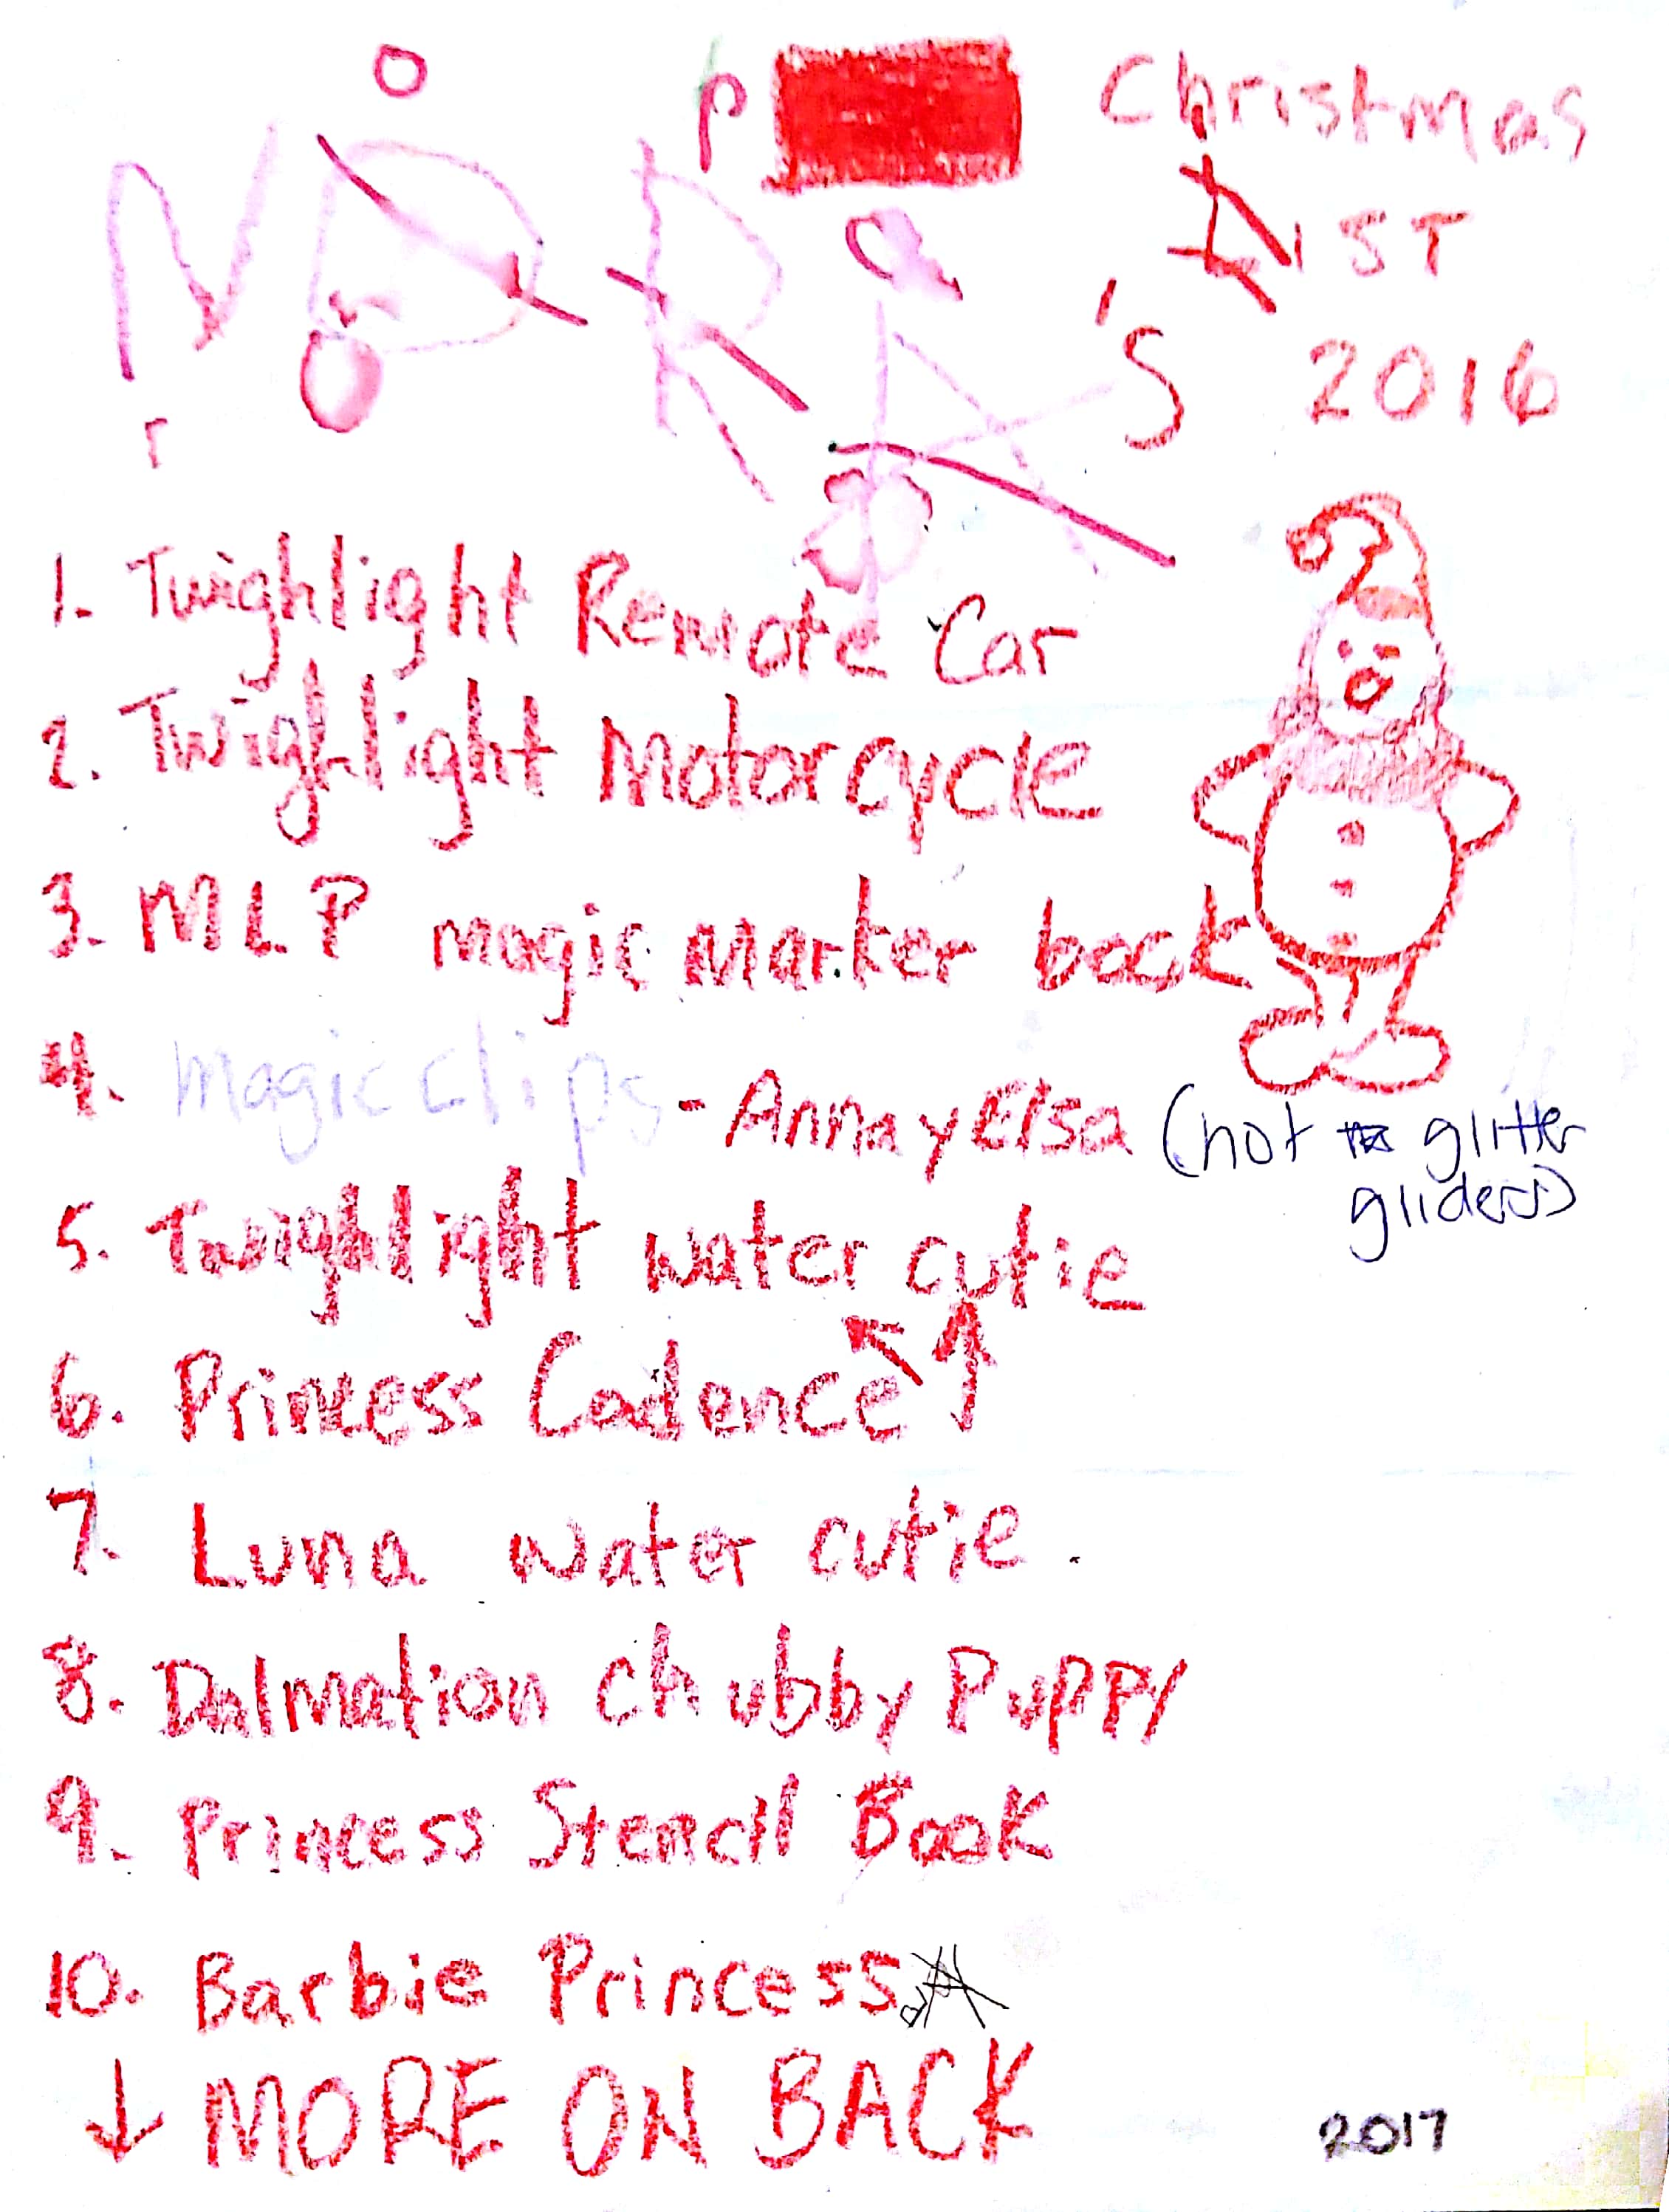 NORA's Christmas LIST 2016
1. Twighlight Remote Car
2. Twighlight Motorcycle
3. MLP magic Marker book
4. magic clips - Anna y Elsa (not glitter
gliders)
5. Twighlight water cutie
6. Princess Cadence
7. Luna water cutie.
8. Dalmation chubby PuPPY
9. Princess Stencil Book
10. Barbie Princess
↓ MORE ON BACK
2017